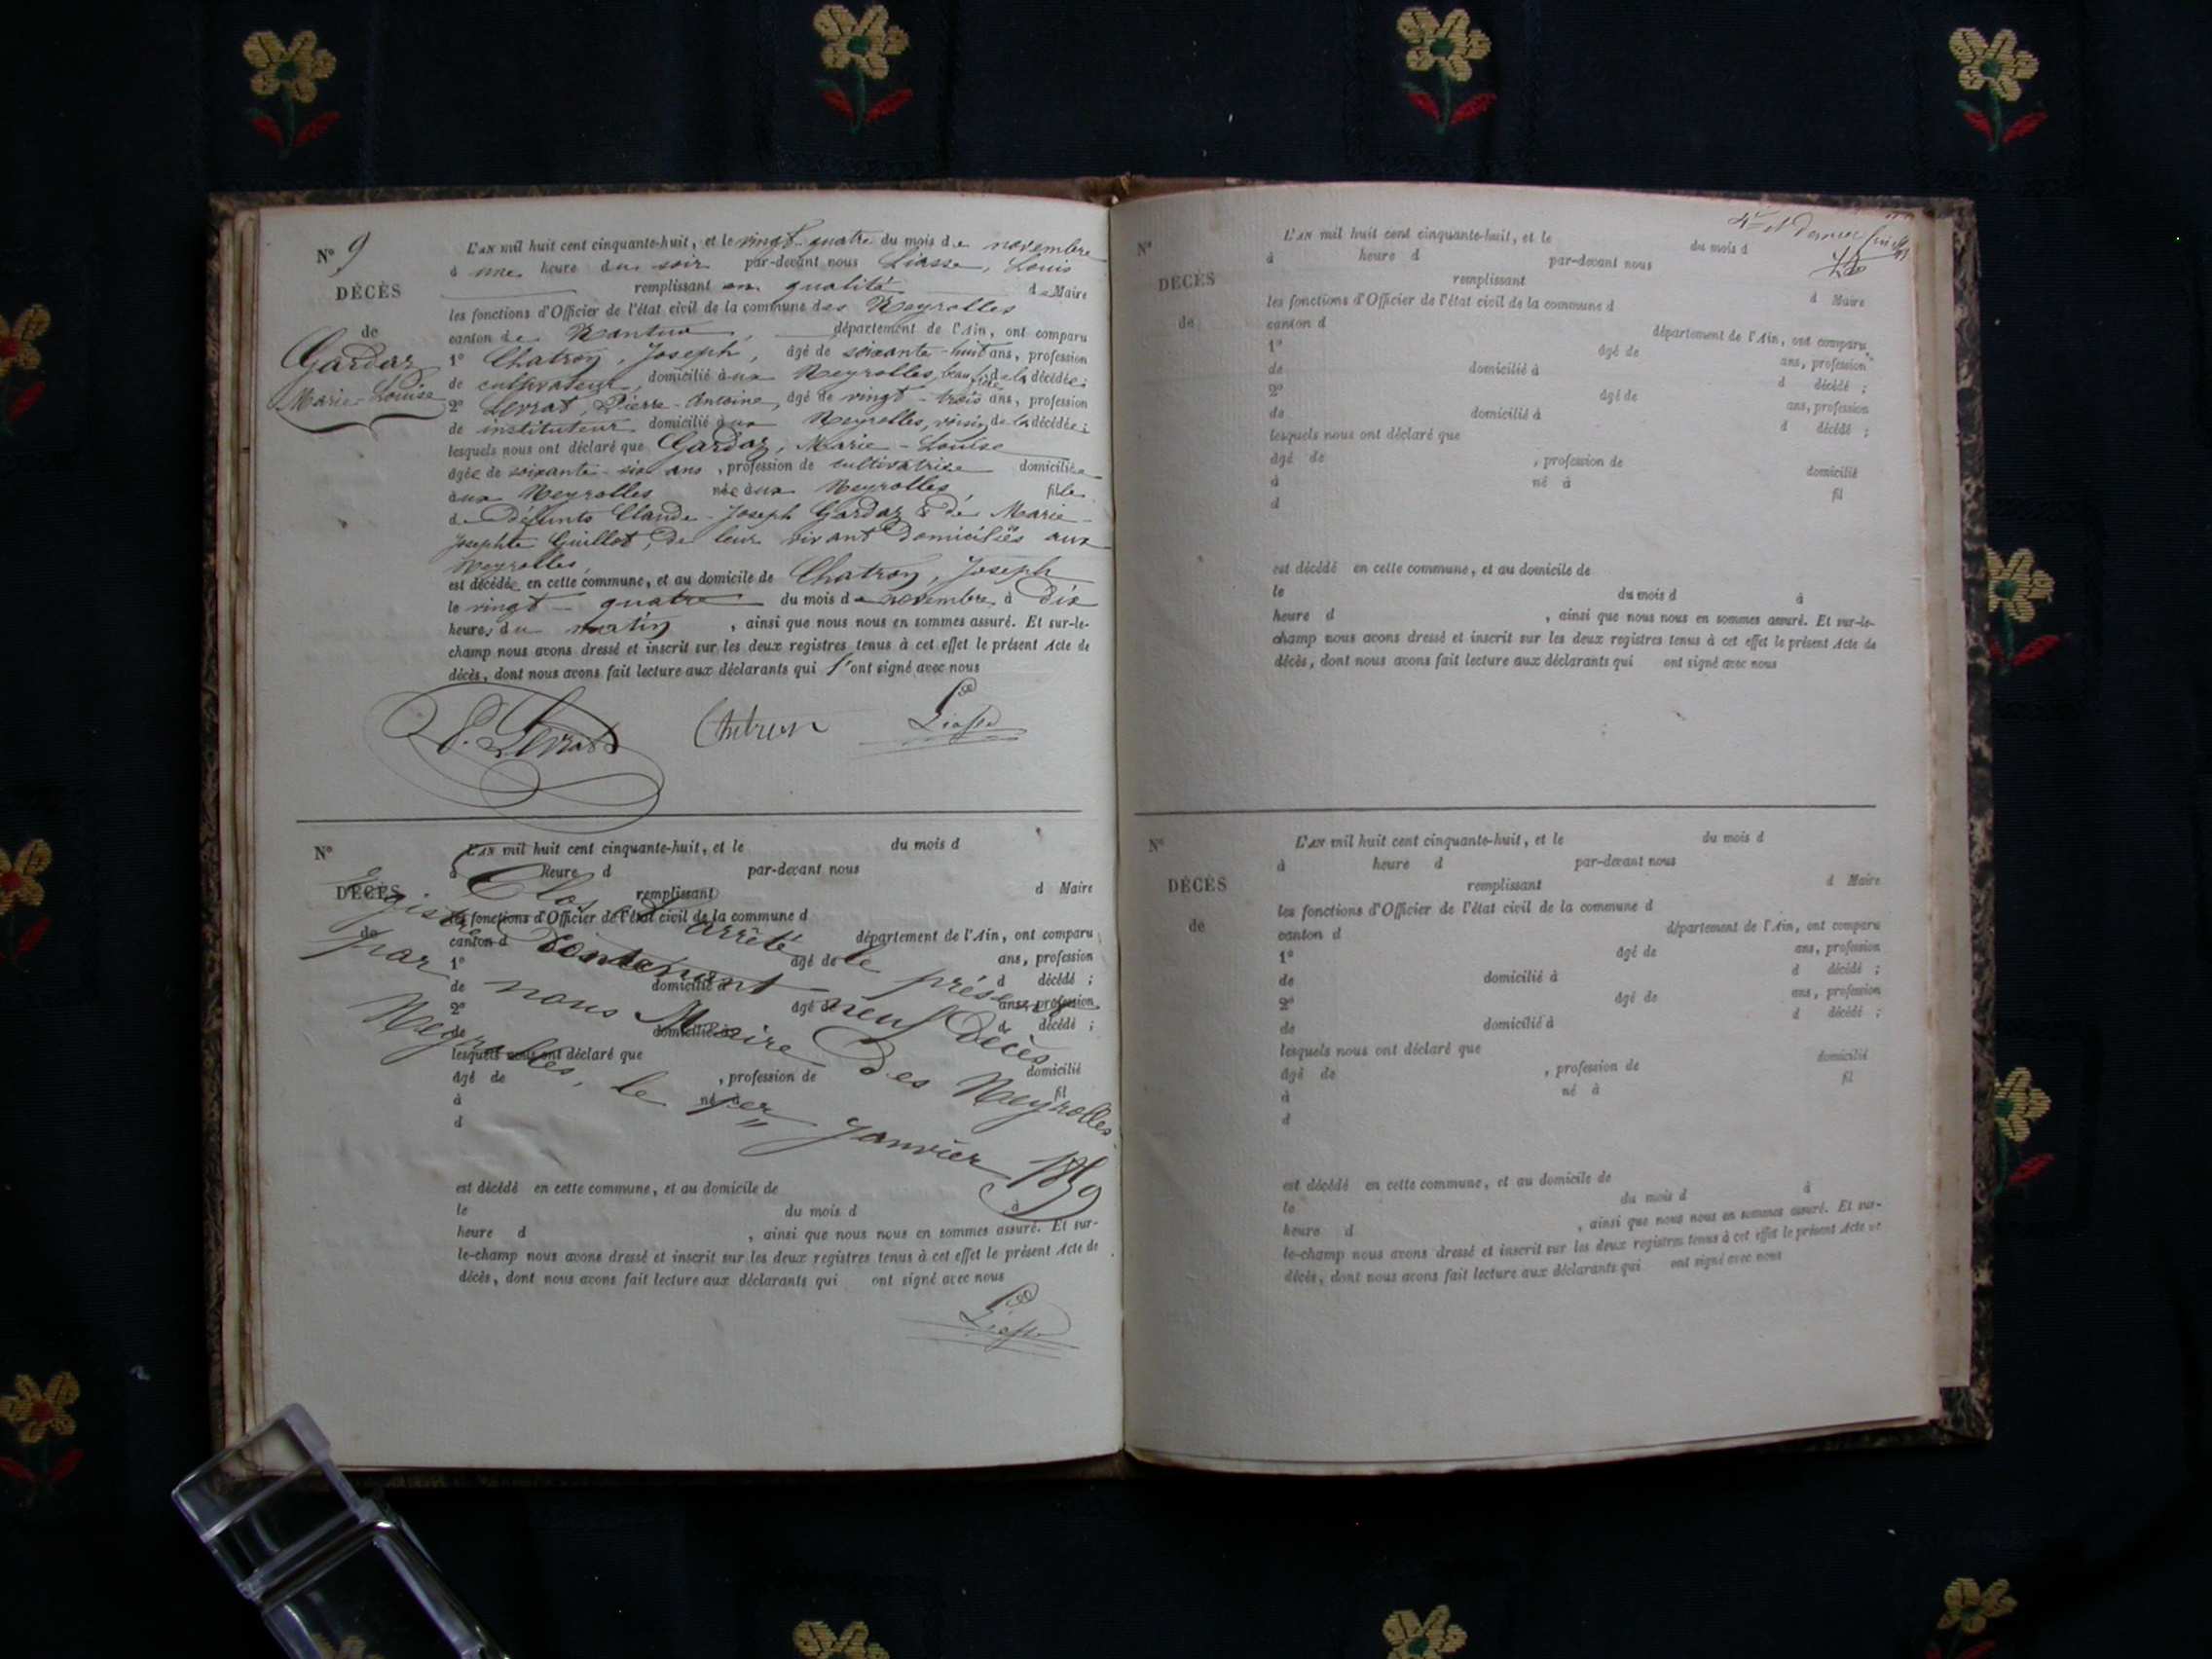 N° 9
DÉCÈS
de
Gardaz
Marie-Louise
L'AN mil huit cent cinquante-huit, et le vingt-quatre du mois de novembre
à une heure du soir par-devant nous Liasse, Louis
remplissant en qualité de Maire
les fonctions d'Officier de l'état civil de la commune des Neyrolles
canton de Nantua, département de l'Ain, ont comparu
1° Chatron, Joseph, âgé de soixante-huit ans, profession
de cultivateur, domicilié aux Neyrolles, beau frère de la décédée;
2° Levrat, Pierre-Antoine, âgé de vingt-trois ans, profession
de instituteur domicilié aux Neyrolles, voisin de la décédée;
lesquels nous ont déclaré que Gardaz, Marie-Louise
âgée de soixante-six ans, profession de cultivatrice domiciliée
aux Neyrolles née aux Neyrolles fille
de défunts Claude-Joseph Gardaz & de Marie-
Josephte Guillot, de leur vivant domiciliés aux
Neyrolles,
est décédée en cette commune, et au domicile de Chatron, Joseph
le vingt-quatre du mois de novembre à dix
heures du matin, ainsi que nous nous en sommes assuré. Et sur-le-
champ nous avons dressé et inscrit sur les deux registres tenus à cet effet le présent Acte de
décès, dont nous avons fait lecture aux déclarants qui l'ont signé avec nous
P. Levrat Chatron Liasse
N°
DÉCÈS
de
L'AN mil huit cent cinquante-huit, et le du mois d
à heure d par-devant nous
remplissant d Maire
les fonctions d'Officier de l'état civil de la commune d
canton d département de l'Ain, ont comparu
1° âgé de ans, profession
de domicilié à d décédé ;
2° âgé de ans, profession
de domicilié à d décédé ;
lesquels nous ont déclaré que
âgé de , profession de domicilié
à né à fil
d
est décédé en cette commune, et au domicile de
le du mois d à
heure d , ainsi que nous nous en sommes assuré. Et sur-
le-champ nous avons dressé et inscrit sur les deux registres tenus à cet effet le présent Acte de
décès, dont nous avons fait lecture aux déclarants qui ont signé avec nous
Clos et arrêté le présent
registre contenant neuf décès
par nous Maire des Neyrolles.
Neyrolles, le 1er Janvier 1859
Liasse
4e et dernier feuillet
N°
DÉCÈS
de
L'AN mil huit cent cinquante-huit, et le du mois d
à heure d par-devant nous
remplissant d Maire
les fonctions d'Officier de l'état civil de la commune d
canton d département de l'Ain, ont comparu
1° âgé de ans, profession
de domicilié à d décédé ;
2° âgé de ans, profession
de domicilié à d décédé ;
lesquels nous ont déclaré que
âgé de , profession de domicilié
à né à fil
d
est décédé en cette commune, et au domicile de
le du mois d à
heure d , ainsi que nous nous en sommes assuré. Et sur-le-
champ nous avons dressé et inscrit sur les deux registres tenus à cet effet le présent Acte de
décès, dont nous avons fait lecture aux déclarants qui ont signé avec nous
N°
DÉCÈS
de
L'AN mil huit cent cinquante-huit, et le du mois d
à heure d par-devant nous
remplissant d Maire
les fonctions d'Officier de l'état civil de la commune d
canton d département de l'Ain, ont comparu
1° âgé de ans, profession
de domicilié à d décédé ;
2° âgé de ans, profession
de domicilié à d décédé ;
lesquels nous ont déclaré que
âgé de , profession de domicilié
à né à fil
d
est décédé en cette commune, et au domicile de
le du mois d à
heure d , ainsi que nous nous en sommes assuré. Et sur-
le-champ nous avons dressé et inscrit sur les deux registres tenus à cet effet le présent Acte de
décès, dont nous avons fait lecture aux déclarants qui ont signé avec nous